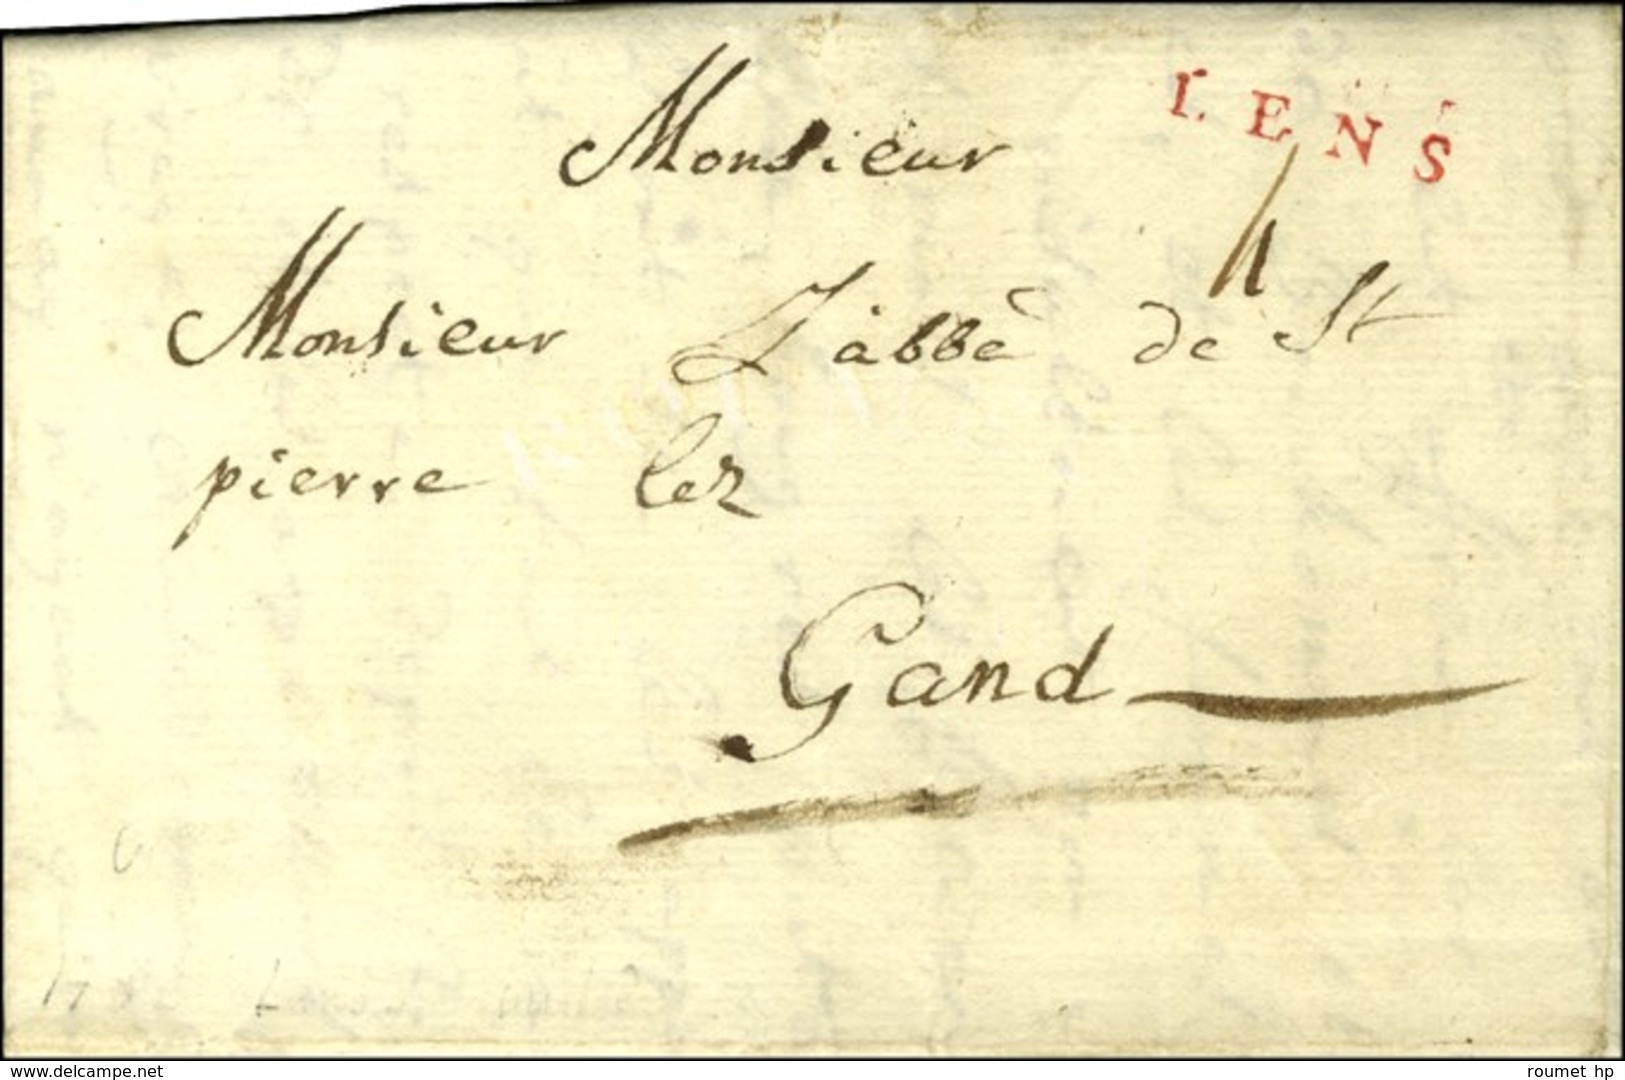 LENS
Monsieur
4
Monsieur L'abbé de St
pierre lez
Gand
www.delcampe.net
roumet hp